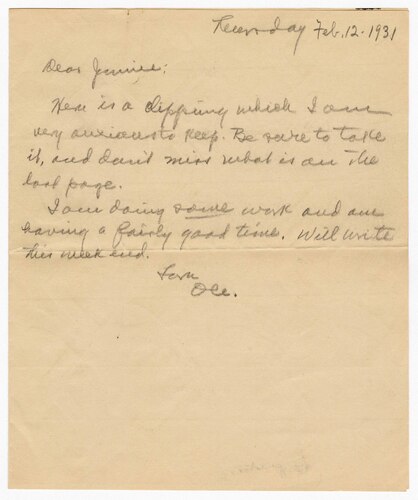 Thursday Feb. 12 - 1931
Dear Jimmie:
Here is a clipping which I am
very anxious to keep. Be sure to take
it, and don't miss what is on the
last page.
I am doing some work and am
having a fairly good time. Will write
this week end.
Love
Ole.